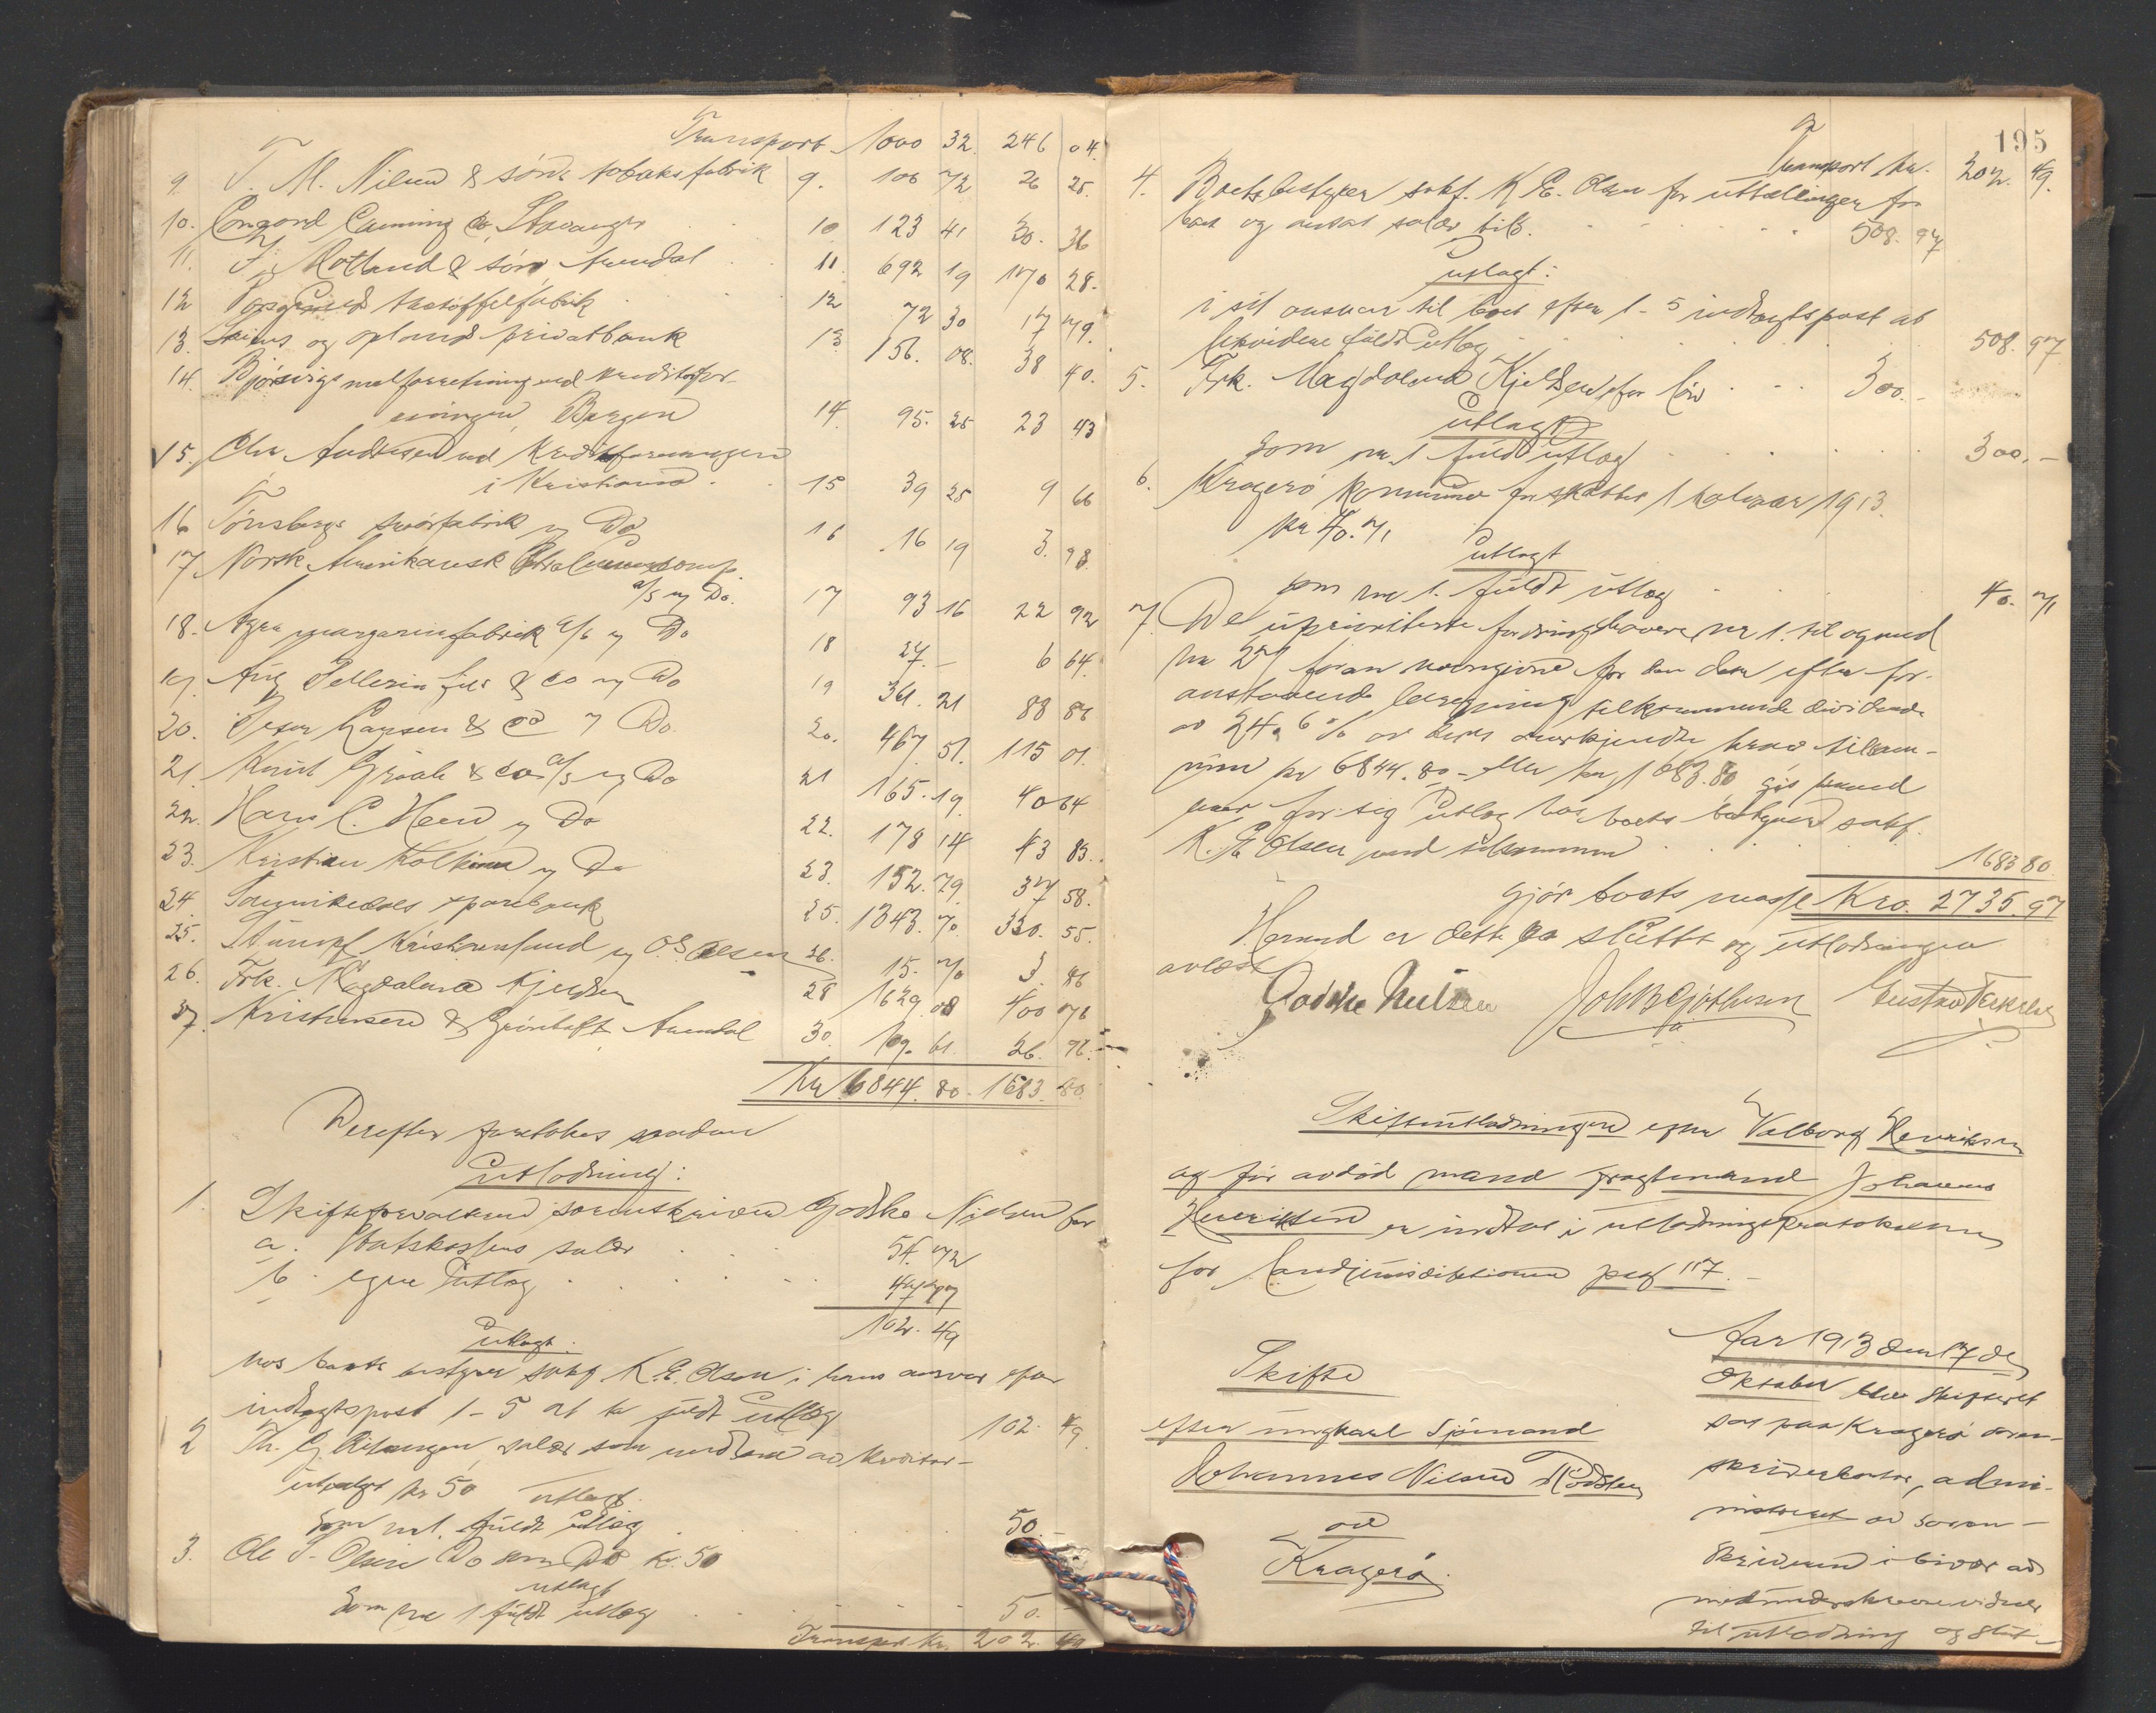 Transport 1000 32. 246 04.
9. T. M. Nilsen & søns tobaksfabrik 9. 106 72 26 25.
10. Concord Canning Co, Stavanger 10 123 41 30. 36
11. Motland & søn Arendal 11. 692 19 170 28.
12 Porsgrunds tøffelfabrik 12 72 30 17 79.
13. Skiens og oplands privatbank 13 156. 08. 38 40.
14. Bjørsvigs melforretning ved kreditorfor-
eningen, Bergen 14. 95. 25 23 43
15. Chr Andresen ved Kreditforeningen
i Kristiania. 15 39 25 9 66
16 Tønsbergs smørfabrik v Do 16 16 19 3. 98
17 Norsk Amerikansk comp.
a/s v Do. 17 93 16 22 92
18. Agra margarinfabrik a/s v Do 18 27. – 6 64.
19. Aug Pellerin fils & co v Do 19 361. 21 88 86
20. Larsen & Co v Do. 20. 467. 51. 115 01.
21. Knut Graah & co a/s v Do 21 165. 19. 40 64
22. Hans C. v Do 22. 178 14 43 83.
23. Kristian v Do 23. 152. 79. 37 58.
24 Sannikedals sparebank 25. 1343. 70. 330. 55.
25. Kristiansund v O. S. Olsen 26. 15. 70 3. 86
26. Frk. Magdalena Kjeldsen 28 1629. 08 400 76
27. Kristensen & Grøntoft Arendal 30. 109. 61. 26. 96.
Kr 6844. 80. 1683. 80.
Derefter foretokes saadan
Utlodning:
1. Skifteforvalteren sorenskriver Godske Nielsen for
a. Statskassens salær 54. 72
b. egne Utlæg 47 77
102. 49
Utlagt:
hos boets bestyrer sakf K. E. Olsen i hans ansvar efter
indtægtspost 1 – 5 at ha fuldt Utlæg 102. 49
2 Th. G. salær som medlem av kreditor-
utvalget kr 50 utlagt
som nr 1. fuldt utlæg 50. –
3. Ole S. Olsen Do som Do kr. 50
utlagt
Som nr 1 fuldt utlæg 50. –
Transport kr. 202. 49
195
Transport kr. 202. 49.
4. Boets bestyrer sakf. K. E. Olsen for uttællinger for
boet og antat salær tils. 508. 97
utlagt:
i sit ansvar til boet efter 1 – 5 indtægtspost at
likvidere fuldt Utlæg 508. 97
5. Frk. Magdalena Kjeldsen for løn 300. –
utlagt
Som nr. 1 fuldt utlæg 300. –
6. Kragerø kommune for skatter 1 halvaar 1913.
kr 40. 71
utlagt
som nr 1. fuldt utlæg 40. 71
7. De uprioriterte fordringshavere nr 1. til og med
nr 27 foran navngivne for den dem efter for-
anstaaende beregning tilkommende dividende
av 24.6 % av deres anerkjendte krav tilsam-
men kr 6844. 80 – eller kr 1683. 80 gis hermed
hver for sig Utlæg hos boets bestyrer sakf.
K. E. Olsen med tilsammen 1683 80
gjør boets masse Kro. 2735. 97
Hermed er dette bo sluttet og utlodningen
avlæst
Godske Nielsen
Skifteutlodningen efter Valborg Henriksen
og før avdød mand fragtemand Johannes
Henriksen er indtat i utlodningsprotokollen
for landjurisdiktionen pag 117. –
Skifte
efter ungkarl Sjømand
Johannes Nilsen
av
Kragerø.
Aar 1913 den 17 de
Oktober blev Skifteret
sat paa Kragerø soren-
skriverkontor, admi-
nistreret av soren-
skriveren i bivær av
medunderskrevne vidner
til utlodning og slut-